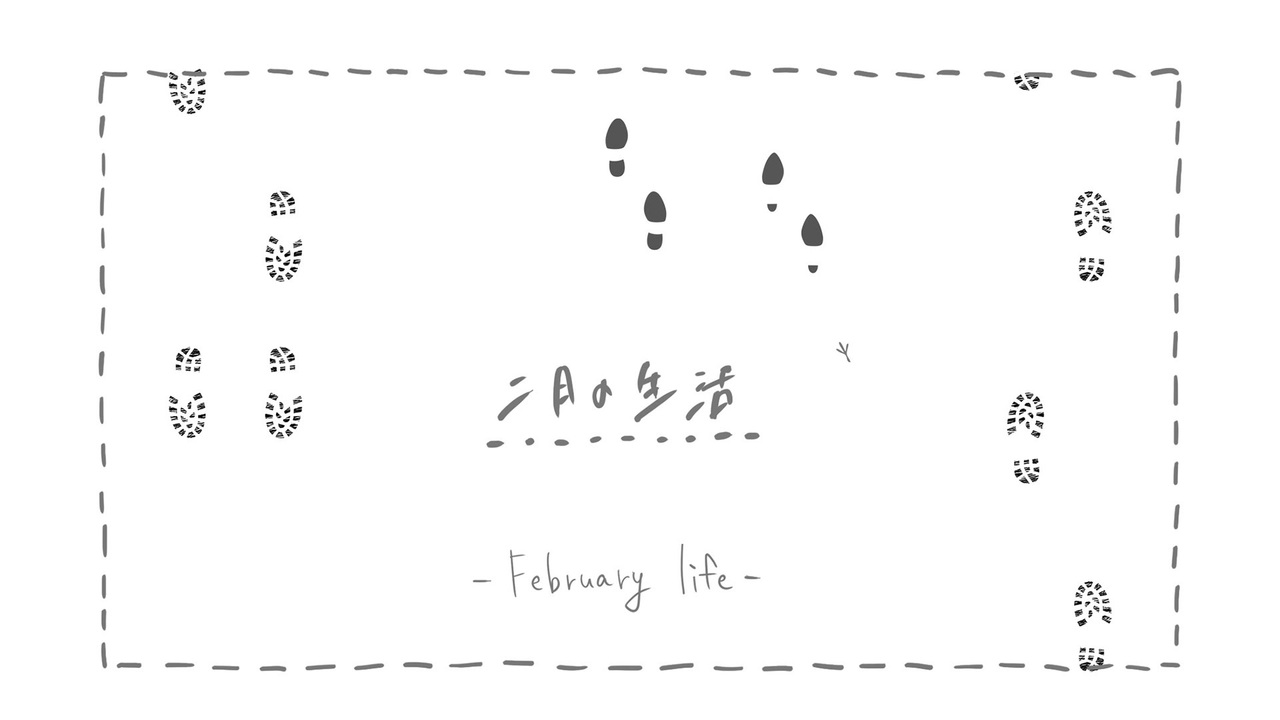 二月の生活
- February life -